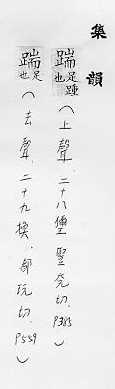 集韻
踹足踵也(上聲、二十八獮 豎兗切、P385)
踹足也(去聲、二十九換、都玩切、P559)